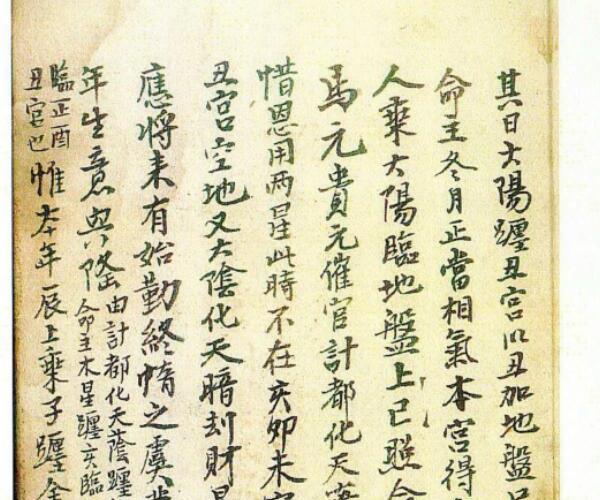 其日太陽躔丑宮以丑加地盤
命主冬月正當相氣本宮得
人乘太陽臨地盤上巳照命
馬元貴元催官計都化天
惜恩用兩星此時不在亥卯未宮
丑宮空地又太陰化天暗刦財
應將來有始勤終惰之虞
年生意興隆由計都化天蔭躔
命主木星躔亥臨
臨正酉
丑宮也惟本年辰上乘子躔金